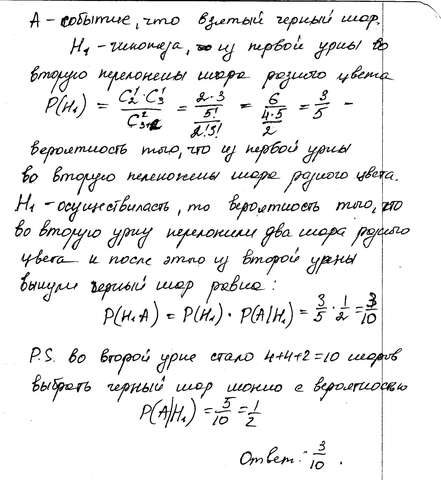 А - событие, что взятый черный шар.
H₁ - гипотеза, из первой урны во
вторую переложены шара разного цвета
P(H₁) = C₂¹ · C₃¹ / C²₃₊₂ = 2·3 / (5! / 2!3!) = 6 / (4·5 / 2) = 3/5 -
вероятность того, что из первой урны
во вторую переложены шара разного цвета.
H₁ - осуществилась, то вероятность того, что
во вторую урну переложили два шара разного
цвета и после этого из второй урны
вынули черный шар равна:
P(H₁A) = P(H₁) · P(A|H₁) = 3/5 · 1/2 = 3/10
P.S. во второй урне стало 4+4+2=10 шаров
выбрать черный шар можно с вероятностью
P(A|H₁) = 5/10 = 1/2
Ответ: 3/10.